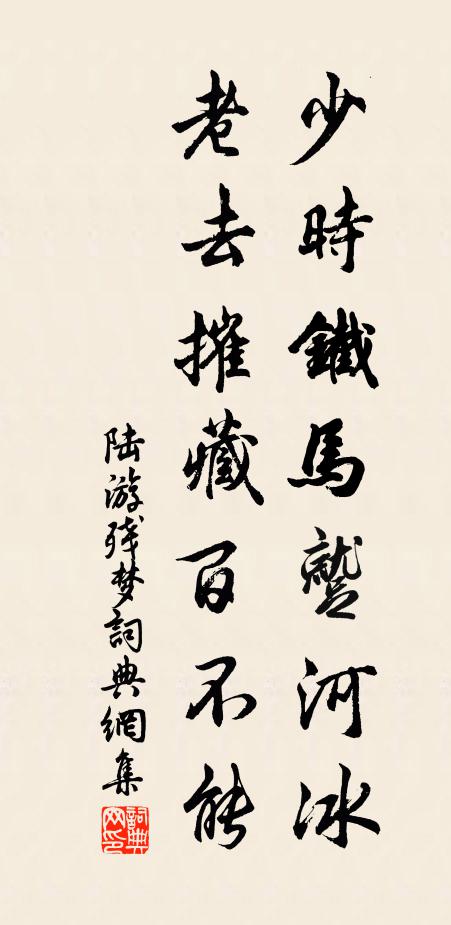 少時鐵馬蹵河冰
老去摧藏百不能
陆游残梦詞典網集
詞典网印